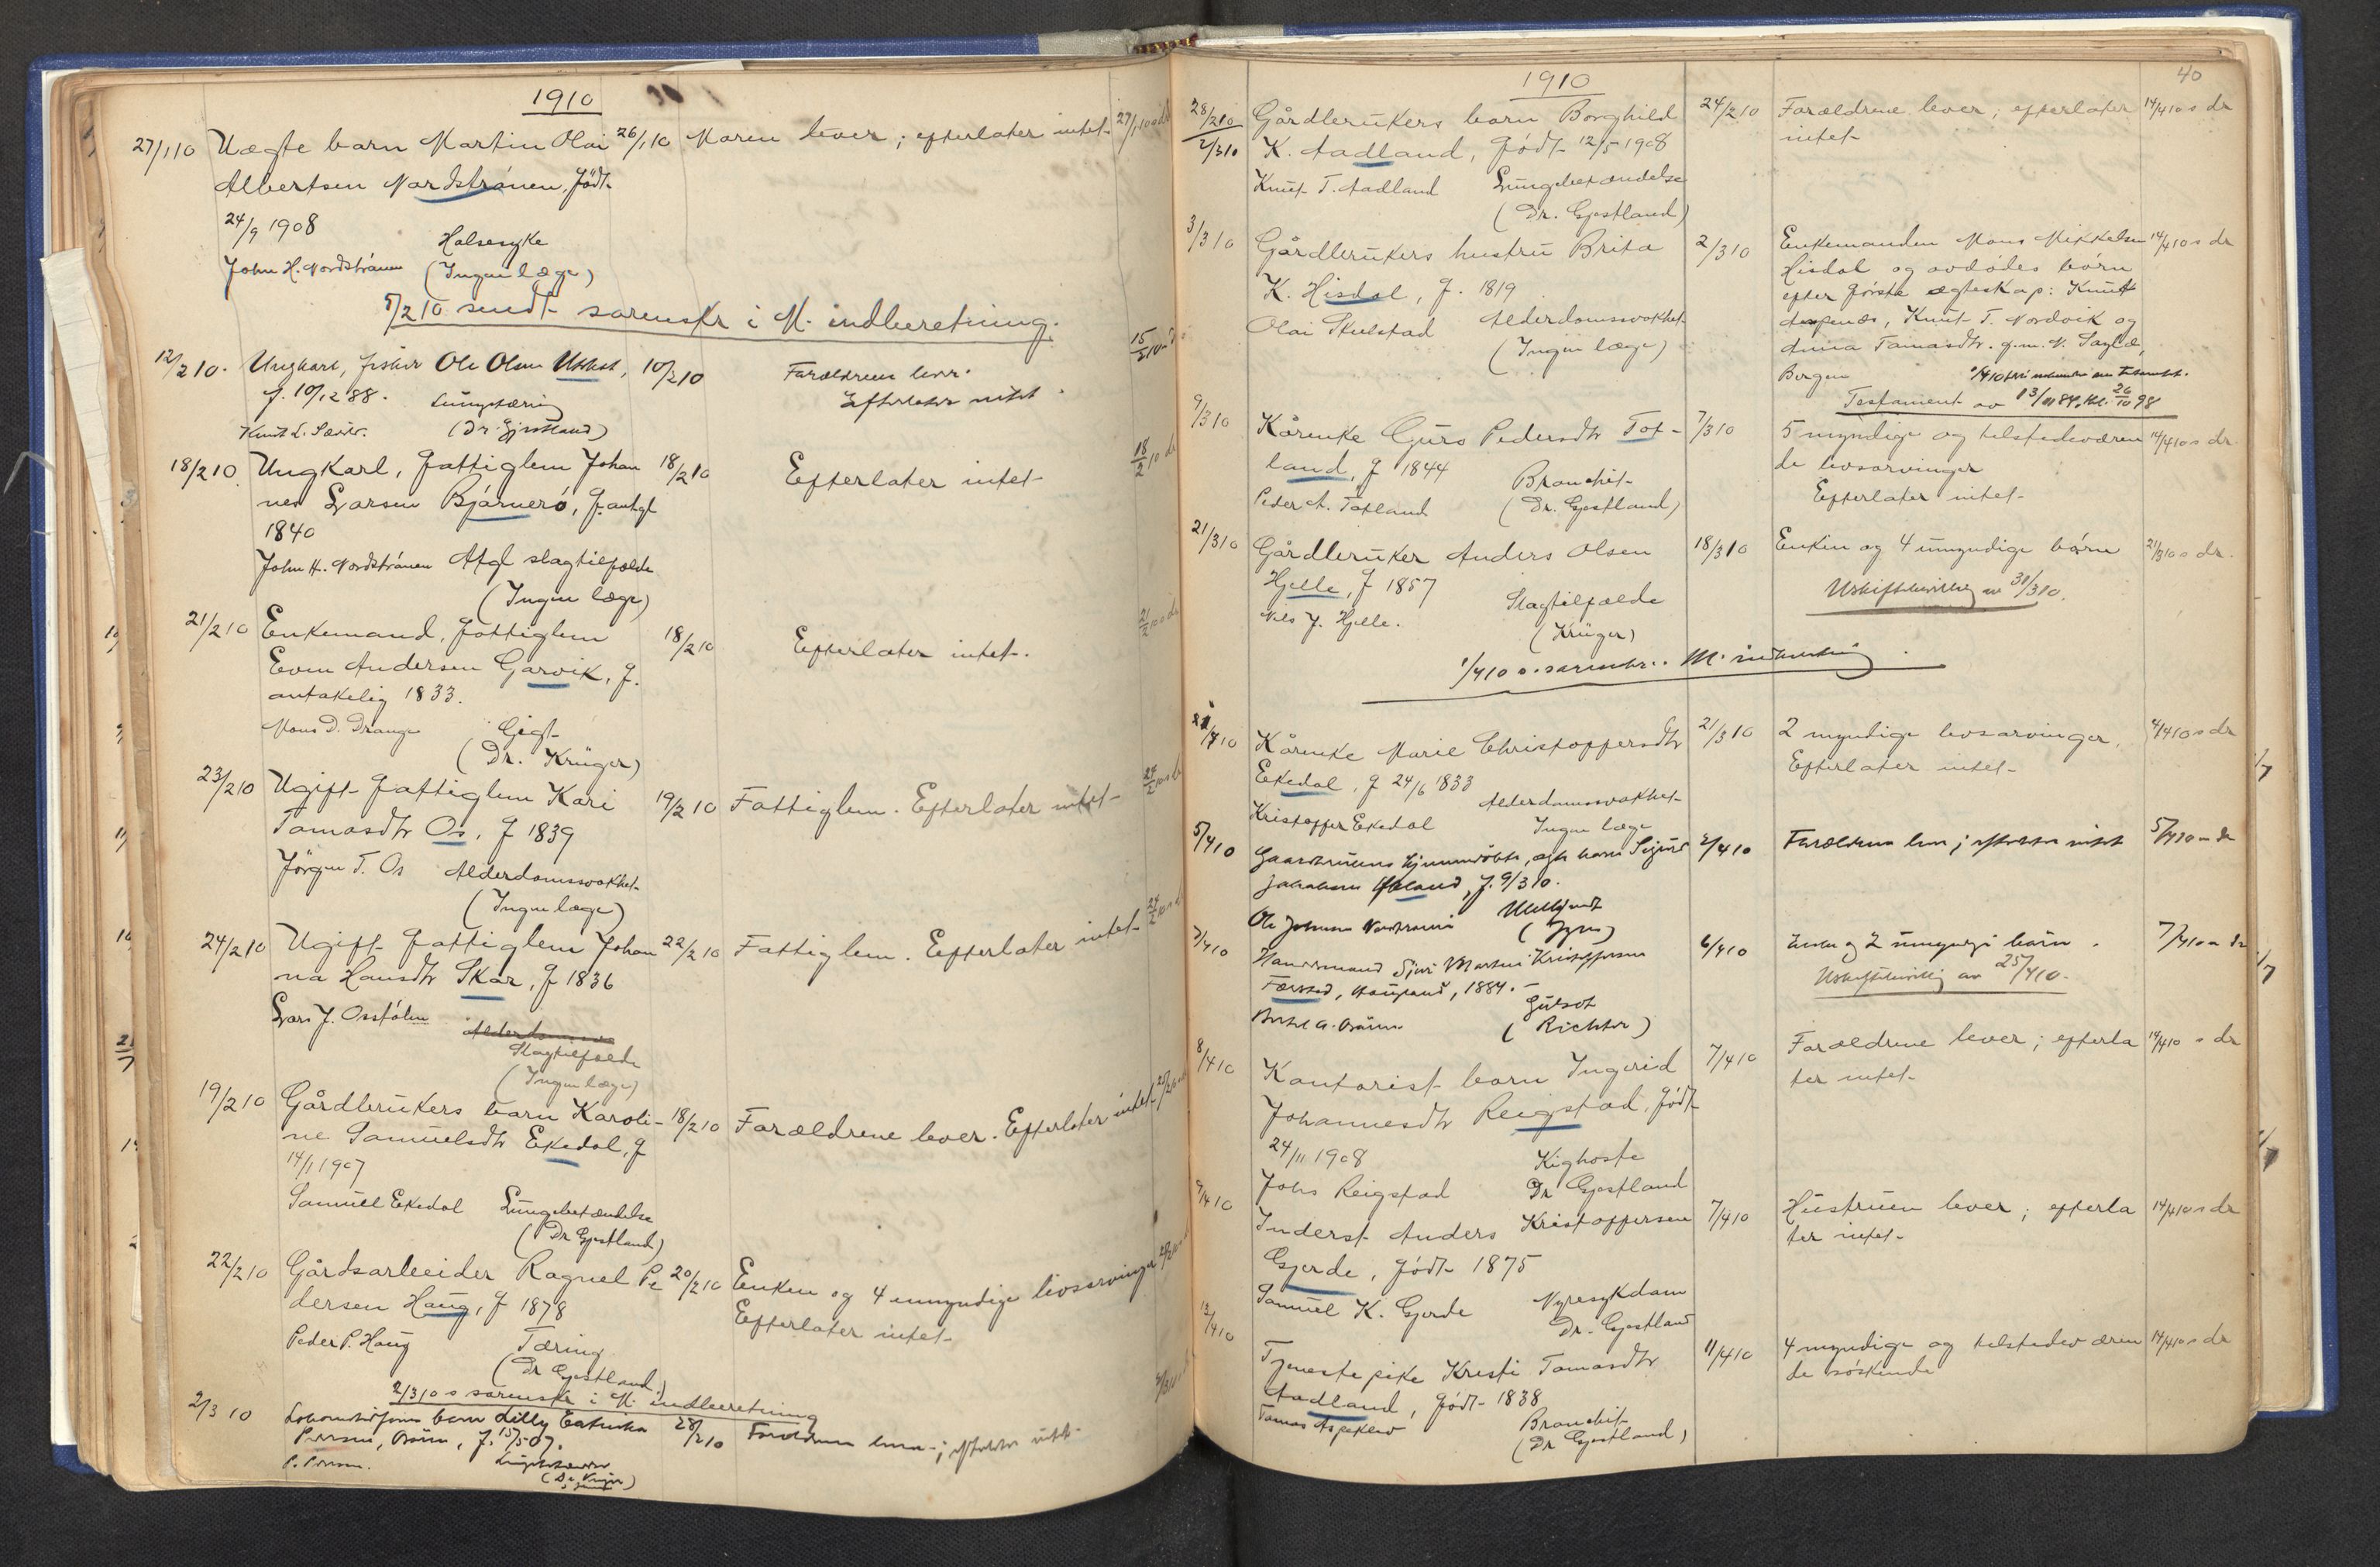 1910
27/1 10 Uægte barn Martin Olai 26/1 10 Moren lever; efterlater intet 27/1 10 s dr
Albertsen Nordstrånen, født
24/9 1908
Halsesyke
John H. Nordstrånen (Ingen læge)
5/2 10 sendt sorenskr i M. indberetning.
12/2 10. Ungkarl, fisker Ole Olsen 10/2 10 Forældrene lever. 15/2 10
f. 10/12 88. Efterlater intet
Lungetæring
Knut L. (Dr. Gjestland)
18/2 10. Ungkarl, fattiglem Johan 18/2 10 Efterlater intet 18/2 10 dr
nes Larsen Bjørnerö, f. antgl
1840
John H. Nordstrånen Atgl slagtilfælde
(Ingen læge)
21/2 10 Enkemand, fattiglem 18/2 10 Efterlater intet. 21/2 10 s dr
Even Andersen Garvik, f.
antakelig 1833.
Mons D. Drange Gigt
(Dr. Krüger)
23/2 10 Ugift fattiglem Kari 19/2 10 Fattiglem. Efterlater intet 24/2 10 s dr
Tomasdtr Os, f 1839
Jörgen T. Os Alderdomssvakhet
(Ingen læge)
24/2 10 Ugift fattiglem Johan 22/2 10 Fattiglem. Efterlater intet 24/2 10 s dr
na Hansdtr Skår, f 1836
Lars J. Osstölen Alderdoms
Slagtilfælde
(Ingen læge)
19/2 10 Gårdbrukers barn Karoli- 18/2 10 Forældrene lever. Efterlater intet
ne Samuelsdtr Ekedal, f
14/1 1907
Samuel Ekedal Lungebetændelse
(Dr Gjestland)
22/2 10 Gårdsarbeider Ragnel Pe 20/2 10 Enken og 4 umyndige livsarvinger
dersen Haug, f 1878 Efterlater intet
Peder P. Haug Tæring
(Dr Gjestland.)
2/3 10 s sorenskr i M. indberetning
2/3 10 barn Lilly 28/2 10 Forældrene lever; efterlater intet
f. 15/5 07.
40
1910
28/2 10 Gårdbrukers barn Borghild 24/2 10 Forældrene lever; efterlater 14/4 10 s dr
2/3 10 K. Aadland, født 12/5 1908 intet
Knut T. Aadland Lungebetændelse
(Dr. Gjestland)
3/3 10 Gårdbrukers hustru Brita 2/3 10 Enkemanden Mons Mikkelsen 14/4 10 s dr
K. Hisdal, f. 1819 Hisdal og avdödes börn
Olai Skulstad Alderdomssvakhet efter förste egteskap: Knut
(Ingen læge) Knut T. Nordvik og
Anna Tomasdtr. g.m. N.
Bergen
Testament av
9/3 10 Kårenke Guro Pedersdtr Tot- 7/3 10 5 myndige og tilstedeværen 14/4 10 s dr
land, f 1844 de livsarvinger
Bronchit Efterlater intet
Peder A. Totland (Dr. Gjestland)
21/3 10 Gårdbruker Anders Olsen 18/3 10 Enken og 4 umyndige börn 21/3 10 s dr.
Hjelle, f 1857 Uskiftebevilling av 30/3 10.
Slagtilfælde
Nils J. Hjelle. (Krüger)
1/4 10 s. sorenskr. M. indberetning
Kårenke Marie Christoffersdtr 21/3 10 2 myndige livsarvinger. 4/4 10 s dr
Ekedal, f 24/6 1833 Efterlater intet
Alderdomssvakhet
Kristoffer Ekedal Ingen læge
5/4 10 barn Sigurd 2/4 10 Forældrene lever; efterlater intet 5/4 10 s dr
f. 9/3 10.
7/4 10 Kristoffersen 6/4 10 Enke og 2 umyndige börn. 7/4 10 s dr
1884. Uskiftebevilling av 25/4 10.
Gulsot
(Richter)
8/4 10 Kontorist barn Ingerid 7/4 10 Forældrene lever; efterla 14/4 10 s dr
Johannesdtr Reigstad, født ter intet
24/11 1908 Kighoste
Johs Reigstad Dr Gjestland
9/4 10 Inderst Anders Kristoffersen 7/4 10 Hustruen lever; efterla 14/4 10 s dr
Gjerde, født 1875 ter intet
Samuel K. Gjerde Nyresykdom
Dr. Gjestland
13/4 10 Tjenestepike Kristi Tomasdtr 11/4 10 4 myndige og tilstedeværen 14/4 10 s dr
Aadland, født 1838 de söskende
Tomas Bronchit
(Dr Gjestland)